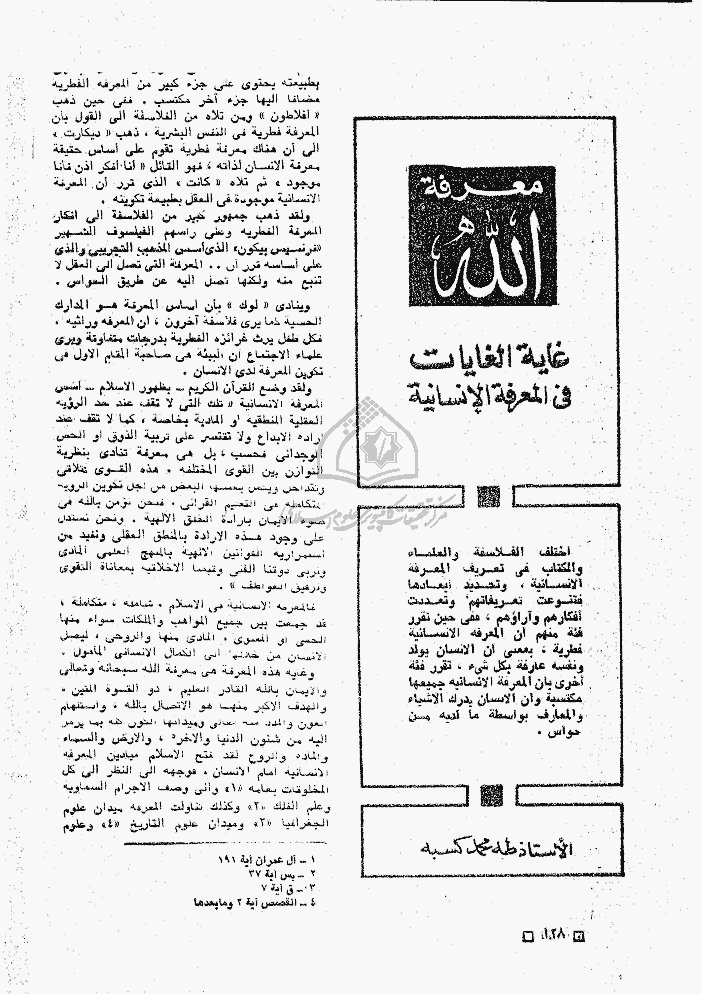 معرفة
الله
غاية الغايات
فى المعرفة الإنسانية
اختلف الفلاسفة والعلماء
والكتاب فى تعريف المعرفة
الانسانية ، وتحديد أبعادها
فتنوعت تعريفاتهم وتعددت
أفكارهم وآراؤهم ، ففى حين تقرر
فئة منهم أن المعرفة الانسانية
فطرية ، بمعنى أن الانسان يولد
ونفسه عارفة بكل شىء ، تقرر فئة
أخرى بأن المعرفة الانسانية جميعها
مكتسبة وأن الانسان يدرك الأشياء
والمعارف بواسطة ما لديه من
حواس .
الأستاذ طه محمد كسبه
بطبيعته يحتوى على جزء كبير من المعرفة الفطرية
مضافا اليها جزء آخر مكتسب . ففى حين ذهب
« أفلاطون » ومن تلاه من الفلاسفة الى القول بأن
المعرفة فطرية فى النفس البشرية ، ذهب « ديكارت »
الى أن هناك معرفة فطرية تقوم على أساس حقيقة
معرفة الانسان لذاته ، فهو القائل « أنا أفكر اذن فأنا
موجود » ثم تلاه « كانت » الذى قرر أن المعرفة
الانسانية موجودة فى العقل بطبيعة تكوينه .
ولقد ذهب جمهور كبير من الفلاسفة الى انكار
المعرفة الفطرية وعلى رأسهم الفيلسوف الشهير
«فرنسيس بيكون» الذى أسس المذهب التجريبى والذى
على أساسه قرر أن .. المعرفة التى تصل الى العقل لا
تنبع منه ولكنها تصل اليه عن طريق الحواس .
وينادى « لوك » بأن أساس المعرفة هو المدارك
الحسية كما يرى فلاسفة آخرون ، أن المعرفة وراثية ،
فكل طفل يرث غرائزه الفطرية بدرجات متفاوتة ويرى
علماء الاجتماع أن البيئة هى صاحبة المقام الأول فى
تكوين المعرفة لدى الانسان .
ولقد وضع القرآن الكريم – بظهور الاسلام – أسس
المعرفة الانسانية « تلك التى لا تقف عند حد الرؤية
العقلية المنطقية أو المادية بخاصة ، كما لا تقف عند
ارادة الابداع ولا تقتصر على تربية الذوق أو الحس
الوجدانى فحسب ، بل هى معرفة تنادى بنظرية
التوازن بين القوى المختلفة . هذه القوى تتلاقى
وتتداخل بعضها البعض من أجل تكوين الرؤية
المتكاملة هى التعليم القرآنى . فنحن نؤمن بالله فى
ضوء الايمان بارادة الخلق الالهية . ونحن نستدل
على وجود هذه الارادة بالمنطق العقلى ونفيد من
استمرارية القوانين الالهية بالمنهج العلمى المادى
ونربى ذوقنا الفنى وقيمنا الأخلاقية بمعاناة التقوى
وترقيق العواطف » .
فالمعرفة الانسانية فى الاسلام . شاملة ، متكاملة ،
قد جمعت بين جميع المواهب والملكات سواء منها
الحسى أو المعنوى . المادى منها والروحى ، ليصل
الانسان من خلالها الى الكمال الانسانى المأمول .
وغاية هذه المعرفة هى معرفة الله سبحانه وتعالى
والايمان بالله القادر العليم ، ذو القوة المتين .
والهدف الأكبر منها هو الاتصال بالله ، واستلهام
العون والمدد منه تعالى وميدانها الكون كله بما يرمز
اليه من شئون الدنيا والآخرة ، والأرض والسماء
والمادة والروح لقد فتح الاسلام ميادين المعرفة
الانسانية أمام الانسان . فوجهه الى النظر الى كل
المخلوقات بعامة «١» والى وصف الأجرام السماوية
وعلم الفلك «٢» وكذلك تناولت المعرفة ميدان علوم
الجغرافيا «٣» وميدان علوم التاريخ «٤» وعلوم
١ – آل عمران آية ١٩١
٢ – يس آية ٣٧
٣ – ق آية ٧
٤ – القصص آية ٢ وما بعدها
١٢٨